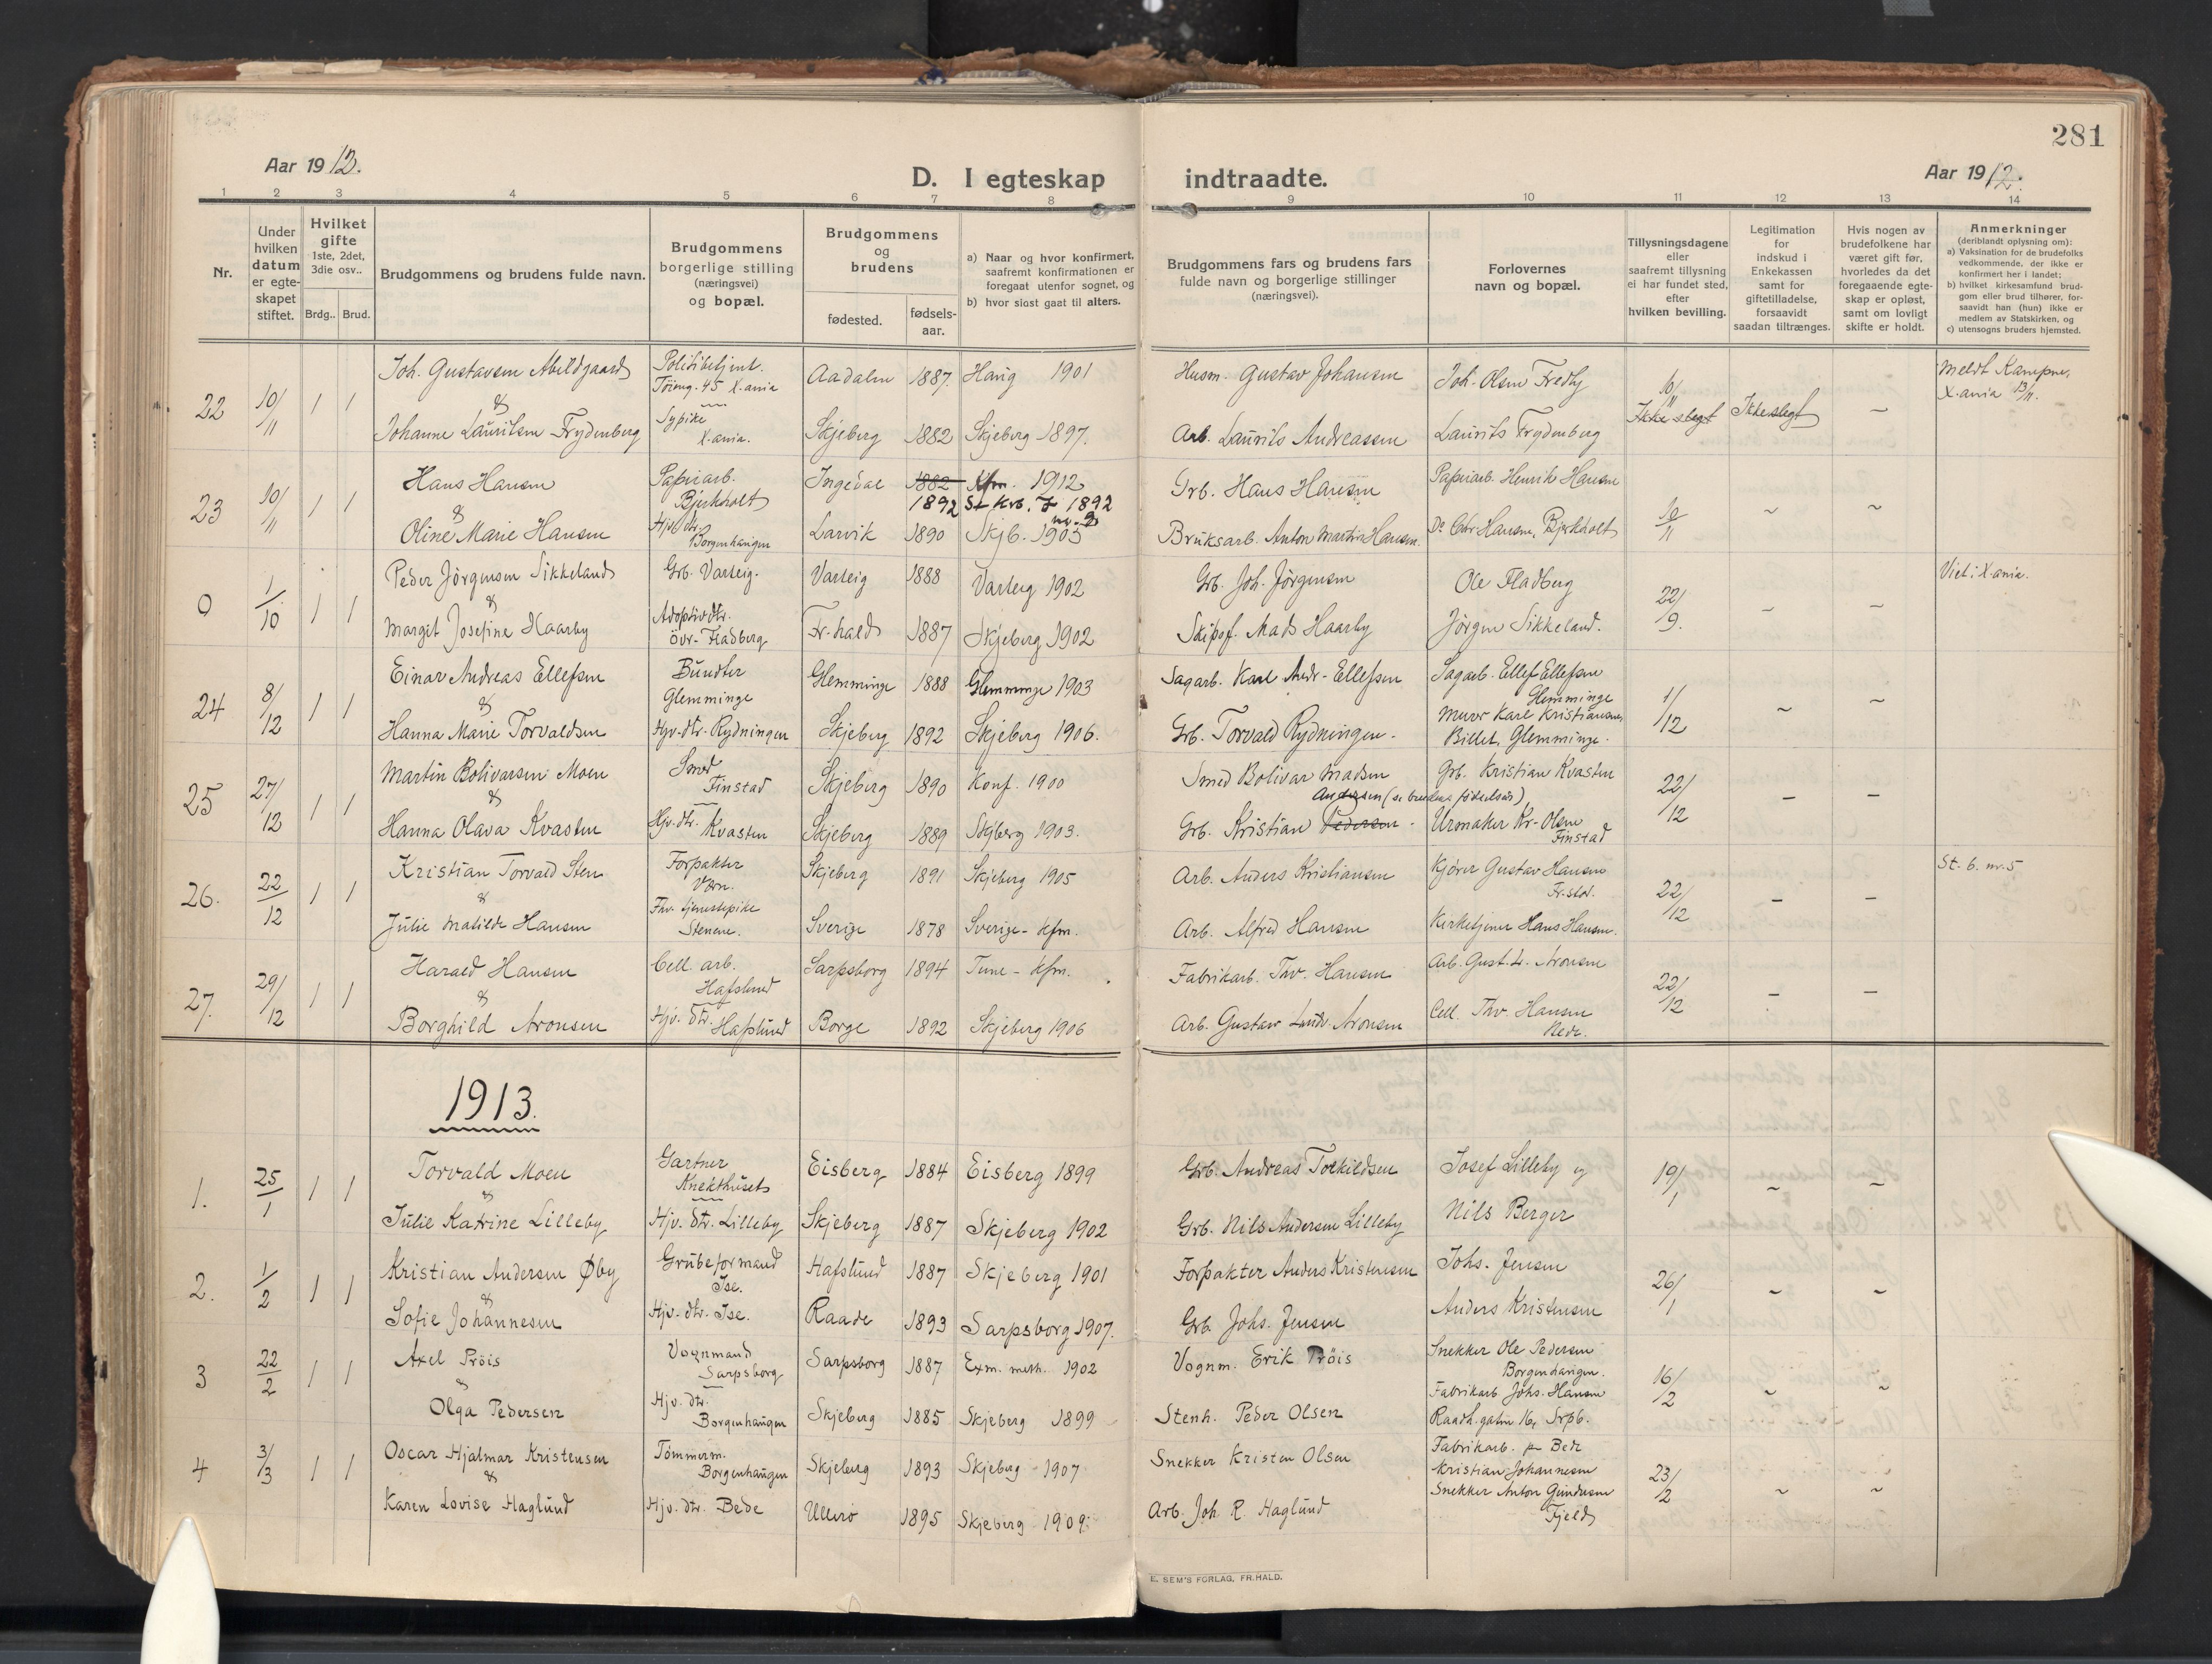 281
Aar 1912.
D. I egteskap indtraadte.
Aar 1912.
1 2 3 4 5 6 7 8 9 10 11 12 13 14
Nr.
Under hvilken datum er egte-skapet stiftet.
Hvilket gifte 1ste, 2det, 3die osv..
Brdg.. Brud.
Brudgommens og brudens fulde navn.
Brudgommens borgerlige stilling (næringsvei) og bopæl.
Brudgommens og brudens
fødested.
fødsels-aar.
a) Naar og hvor konfirmert, saafremt konfirmationen er foregaat utenfor sognet, og
b) hvor sidst gaat til alters.
Brudgommens fars og brudens fars fulde navn og borgerlige stillinger (næringsvei).
Forlovernes navn og bopæl.
Tillysningsdagene eller saafremt tillysning ei har fundet sted, efter hvilken bevilling.
Legitimation for indskud i Enkekassen samt for giftetilladelse, forsaavidt saadan tiltrænges.
Hvis nogen av brudefolkene har været gift før, hvorledes da det foregaaende egte-skap er opløst, samt om lovligt skifte er holdt.
Anmerkninger (deriblandt oplysning om):
a) Vaksination for de brudefolks vedkommende, der ikke er konfirmert her i landet;
b) hvilket kirkesamfund brud-gom eller brud tilhører, for-saavidt han (hun) ikke er medlem av Statskirken, og
c) utensogns bruders hjemsted.
22 10/11 1 1 Joh. Gustavsen Abildgaard Politibetjent. Töieng. 45 X.ania Aadalen 1887. Haug 1901 Husm. Gustav Johansen Joh. Olsen Fredby 10/11 Ikke slegt Ikke slegt ~ Meldt Kampen, X.ania 13/11.
& Johanne Lauritsen Frydenberg Sypike X.ania. Skjeberg 1882 Skjeberg 1897. Arb. Laurits Andreassen Laurits Frydenberg
23 10/11 1 1 Hans Hansen Papirarb. Bjerkholt Ingedal 1882 1892 Kfm. 1912 St Krb. 7 1892 nr. 2 Grb. Hans Hansen Papirarb. Henrik Hansen 10/11 ~ ~
& Oline Marie Hansen Hjv. dtr. Borgenhaugen Larvik 1890 Skjb. 1905 Bruksarb. Anton Martin Hansen. Do Chr Hansen, Bjerkholt
0 1/10 1 1 Peder Jörgensen Sikkeland Grb. Varteig. Varteig 1888 Varteig 1902 Grb. Joh. Jörgensen Ole Fladberg 22/9. ~ ~ Viet i X.ania.
& Margit Josefine Haarby Adoptivdtr. övr. Fladberg Fr.hald 1887 Skjeberg 1902 Skipsf. Mads Haarby Jörgen Sikkeland.
24 8/12 1 1 Einar Andreas Ellefsen Bundter Glemminge Glemminge 1888 Glemminge 1903 Sagarb. Karl Andr. Ellefsen Sagarb. Ellef Ellefsen Glemminge 1/12 ~ ~
& Hanna Marie Torvaldsen Hjv. dtr. Rydningen Skjeberg 1892 Skjeberg 1906. Grb. Torvald Rydningen. Murer Karl Kristiansen, Billet, Glemminge.
25 27/12 1 1 Martin Bolivarsen Moen Smed Finstad Skjeberg 1890 Konf. 1900 Smed Bolivar Madsen Grb. Kristian Kvasten 22/12 – –
Andersen (se brudens fødselsår)
& Hanna Olava Kvasten Hjv. dtr. Kvasten Skjeberg 1889 Skjberg 1903. Grb. Kristian Pedersen. Urmaker Kr. Olsen Finstad
26. 22/12 1 1 Kristian Torvald Sten Forpakter Værn. Skjeberg 1891 Skjeberg 1905 Arb. Anders Kristiansen Kjörer Gustav Hansen Fr.stad. 22/12 – – St. 6. nr. 5
& Julie Matilde Hansen Fhv. tjenestepike Stenene. Sverige 1878 Sverige – Kfm. Arb. Alfred Hansen Kirketjener Hans Hansen.
27. 29/12 1 1 Harald Hansen Cell. arb. Hafslund Sarpsborg 1894 Tune – Kfm. Fabrikarb. Thv. Hansen Arb. Gust. L. Aronsen 22/12 – –
& Borghild Aronsen Hjv. dtr. Hafslund Borge 1892 Skjeberg 1906 Arb. Gustav Ludv. Aronsen Cell. Thv. Hansen Nedr.
1913.
1. 25/1 1 1 Torvald Moen Gartner Knekthuset Eisberg 1884 Eisberg 1899 Grb. Andreas Torkildsen Josef Lilleby og 19/1 ~ ~
& Julie Katrine Lilleby Hjv. dtr. Lilleby Skjeberg 1887 Skjeberg 1902 Grb. Nils Andersen Lilleby Nils Berger
2. 1/2 1 1 Kristian Andersen Øby Grubeformand Ise. Hafslund 1887 Skjeberg 1901 Forpakter Anders Kristensen Johs. Jensen 26/1 ~ ~
& Sofie Johannesen Hjv. dtr. Ise. Raade 1893 Sarpsborg 1907. Grb. Johs. Jensen Anders Kristensen
3 22/2 1 1 Axel Pröis Vognmand Sarpsborg Sarpsborg 1887 Exm. meth. 1902 Vognm. Erik Pröis Snekker Ole Pedersen Borgenhaugen. 16/2 ~ ~
& Olga Pedersen Hjv. dtr. Borgenhaugen Skjeberg 1885 Skjeberg 1899 Stenh. Peder Olsen Fabrikarb Johs. Hansen Raadh.gaten 16, Srpb.
4 3/3 1 1 Oscar Hjalmar Kristensen Tömmerm. Borgenhaugen Skjeberg 1893 Skjeberg 1907 Snekker Kristen Olsen Fabrikarb. Bede Kristian Johannesen 23/2 ~ ~
& Karen Lovise Haglund Hjv. dtr. Bede Ullerö 1895 Skjeberg 1909. Arb. Joh. R. Haglund Snekker Anton Gundersen Fjeld
E. SEM'S FORLAG, FR.HALD.